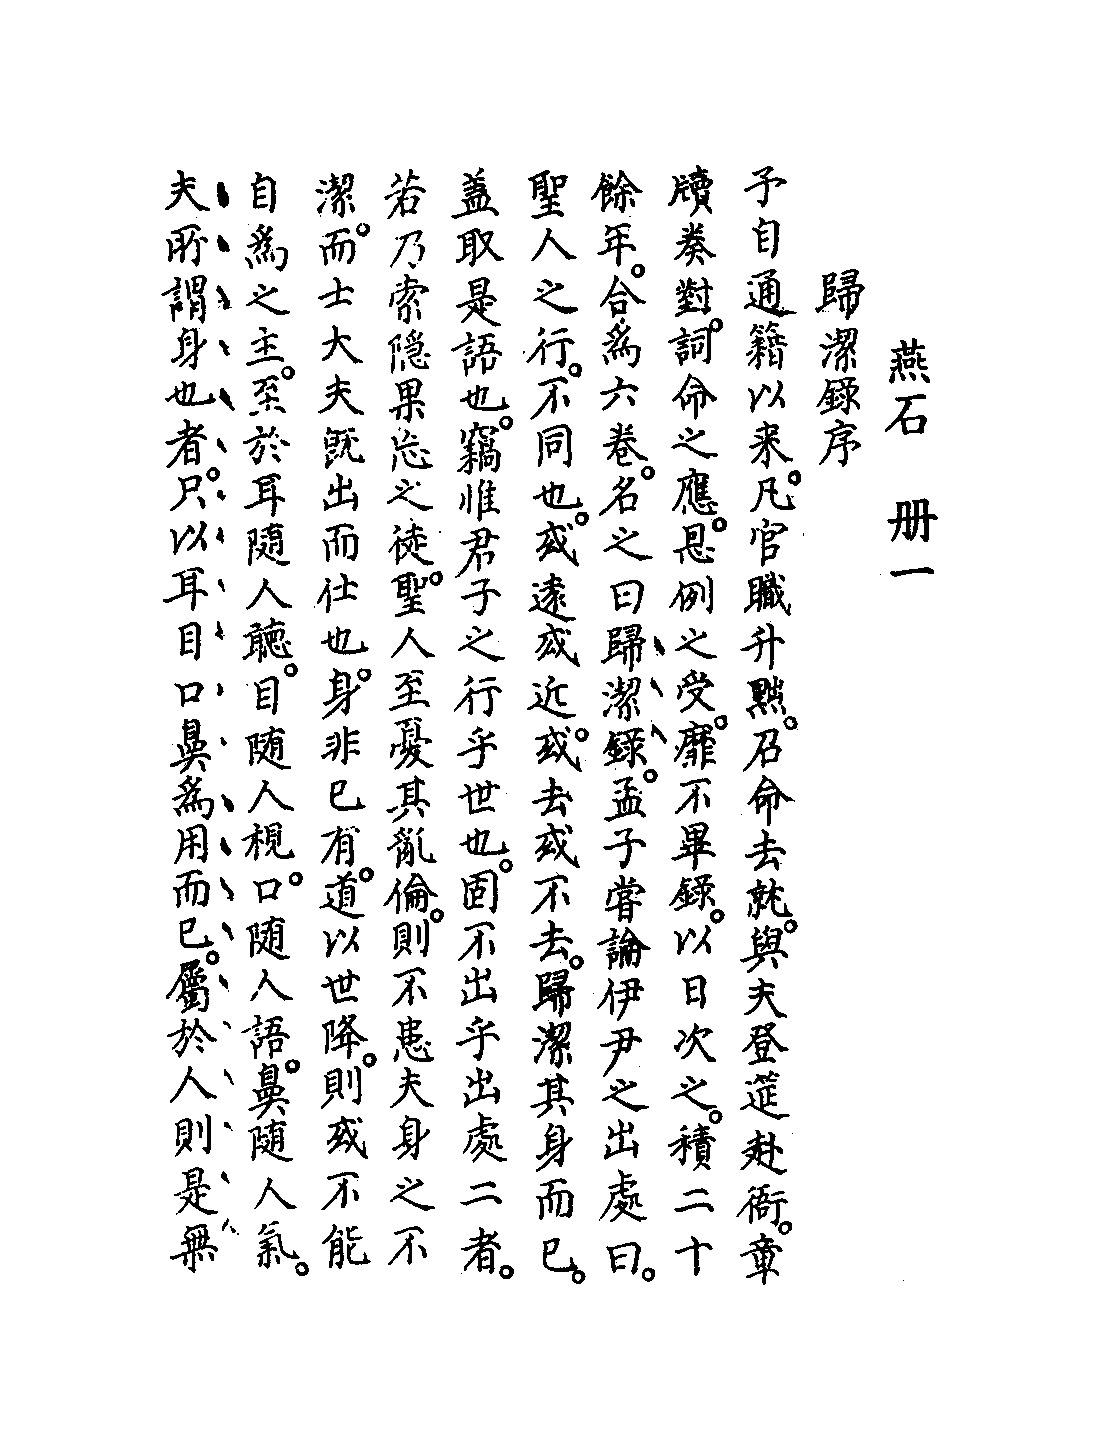 燕石 册一
歸潔錄序
予自通籍以来。凡官職升黜。召命去就。與夫登筵赴衙。章
牘奏對。詞命之應。恩例之受。靡不畢錄。以日次之。積二十
餘年。合為六卷。名之曰歸潔錄。孟子嘗論伊尹之出處曰。
聖人之行。不同也。或遠或近。或去或不去。歸潔其身而已。
盖取是語也。竊惟君子之行乎世也。固不出乎出處二者。
若乃索隐果忘之徒。聖人至憂其亂倫。則不患夫身之不
潔。而士大夫旣出而仕也。身非已有。道以世降。則或不能
自為之主。至於耳隨人聽。目随人視。口随人語。鼻随人氣。
夫所謂身也者。只以耳目口鼻為用而已。屬於人則是無